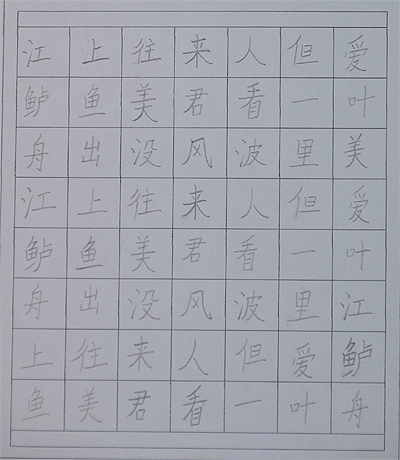 江上往来人但爱
鲈鱼美君看一叶
舟出没风波里美
江上往来人但爱
鲈鱼美君看一叶
舟出没风波里江
上往来人但爱鲈
鱼美君看一叶舟